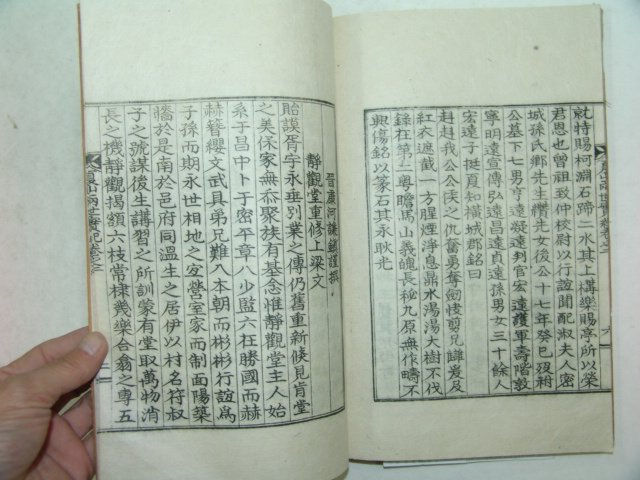 就特賜柯淵石蹄二水其上構樂賜亭所以榮
君恩也曾祖致仲校尉以行誼聞配淑夫人密
城孫氏鄉先生欑先女後公十七年癸巳歿祔
公墓下七男亨遠凝遠判官宏遠護軍壽階敦
寧明遠宣傳弘遠昌遠貞遠孫男女三十餘人
宏遠子以柱夏知橫城郡銘曰
赳赳我公公侯之仇奮勇奪劒恔剪兄讎爰及
紅衣遮截一方腥煙淨息鼎水湯湯大樹不伐
錄在第二粤瞻馬山義魄長秘九原無作疇不
興傷銘以篆石其永耿光
晉康河謙鎮謹撰
靜觀堂重修上梁文
貽謨胥宇永垂別業之傳仍舊重新倏見肯堂
之美保家無忝聚族有基念惟靜觀堂主人始
系子昌中卜于密平章八少監六在勝國而赫
赫簪纓文武具弟兄難八本朝而彬彬行誼爲
子孫而期永世相地之宜營室家而制面陽築
牆於是南於邑府同溫生之居伊以村名符叔
子之號謀後生講習之所訓蒙有堂取萬物消
長之機靜觀揭額六枝常棣幾樂合翕之專五